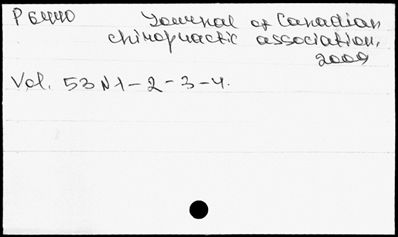 P 6440 Journal of Canadian
chiropractic association,
2009
Vol. 53 N1-2-3-4.